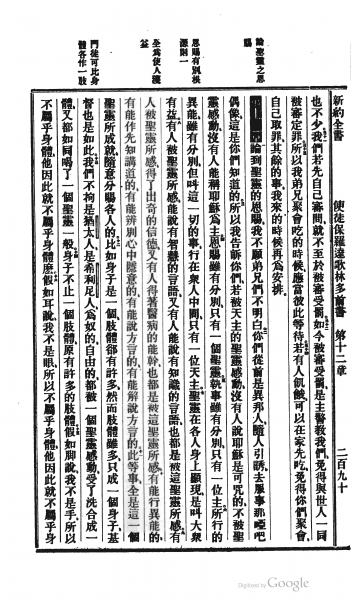 新約全書 使徒保羅達歌林多前書 第十二章 二百九十
也不少、我們若先自己審問、就不至於被審受罰、如今被審受罰、是主警教我們、免得與世人一同
被審定罪、所以我弟兄聚會吃的時候、應當彼此等待、若有人飢餓、可以在家先吃、免得你們聚會
自己取罪、其餘的事、我來的時候再爲安排、
論到聖靈的恩賜、我不願弟兄們不明白、你們從前是異邦人、隨人引誘去服事那啞吧
偶像、這是你們知道的、所以我告訴你們、若被天主的聖靈感動、沒有人說耶穌是可咒的、不被聖
靈感動、沒有人能稱耶穌爲主、恩賜雖有分別、只有一個聖靈、執事雖有分別、只有一位主、所行的
異能雖有分別、但叫這一切的事行在衆人中間、只有一位天主、聖靈在各人身上顯現、是叫大衆
有益、有人被聖靈所感、能說有智慧的言語、又有人能說有知識的言語、也都是被這聖靈所感、有
人被聖靈所感、得了出奇的信德、又有人得著醫病的能幹、也都是被這聖靈所感、有能行異能的、
有能作先知講道的、有能辨別心中隱意的、有能說方言的、有能解說方言的、此等事全是這一個
聖靈所成就、隨意分賜各人的、比如身子是一個、肢體卻有許多、然而肢體雖多、只成一個身子、基
督也是如此、我們不拘是猶太人、是希利尼人、爲奴的、自由的、都被一個聖靈感動、受了洗合成一
體、又都如同喝了一個聖靈一般、身子不止一個肢體、原有許多的肢體、假如脚說、我不是手、所以
不屬乎身體、他因此就不屬乎身體麽、假如耳說、我不是眼、所以不屬乎身體、他因此就不屬乎身
論聖靈之恩
賜
恩賜有別根
源則一
至爲使人獲
益
門徒可比身
體各作一肢
Digitized by Google